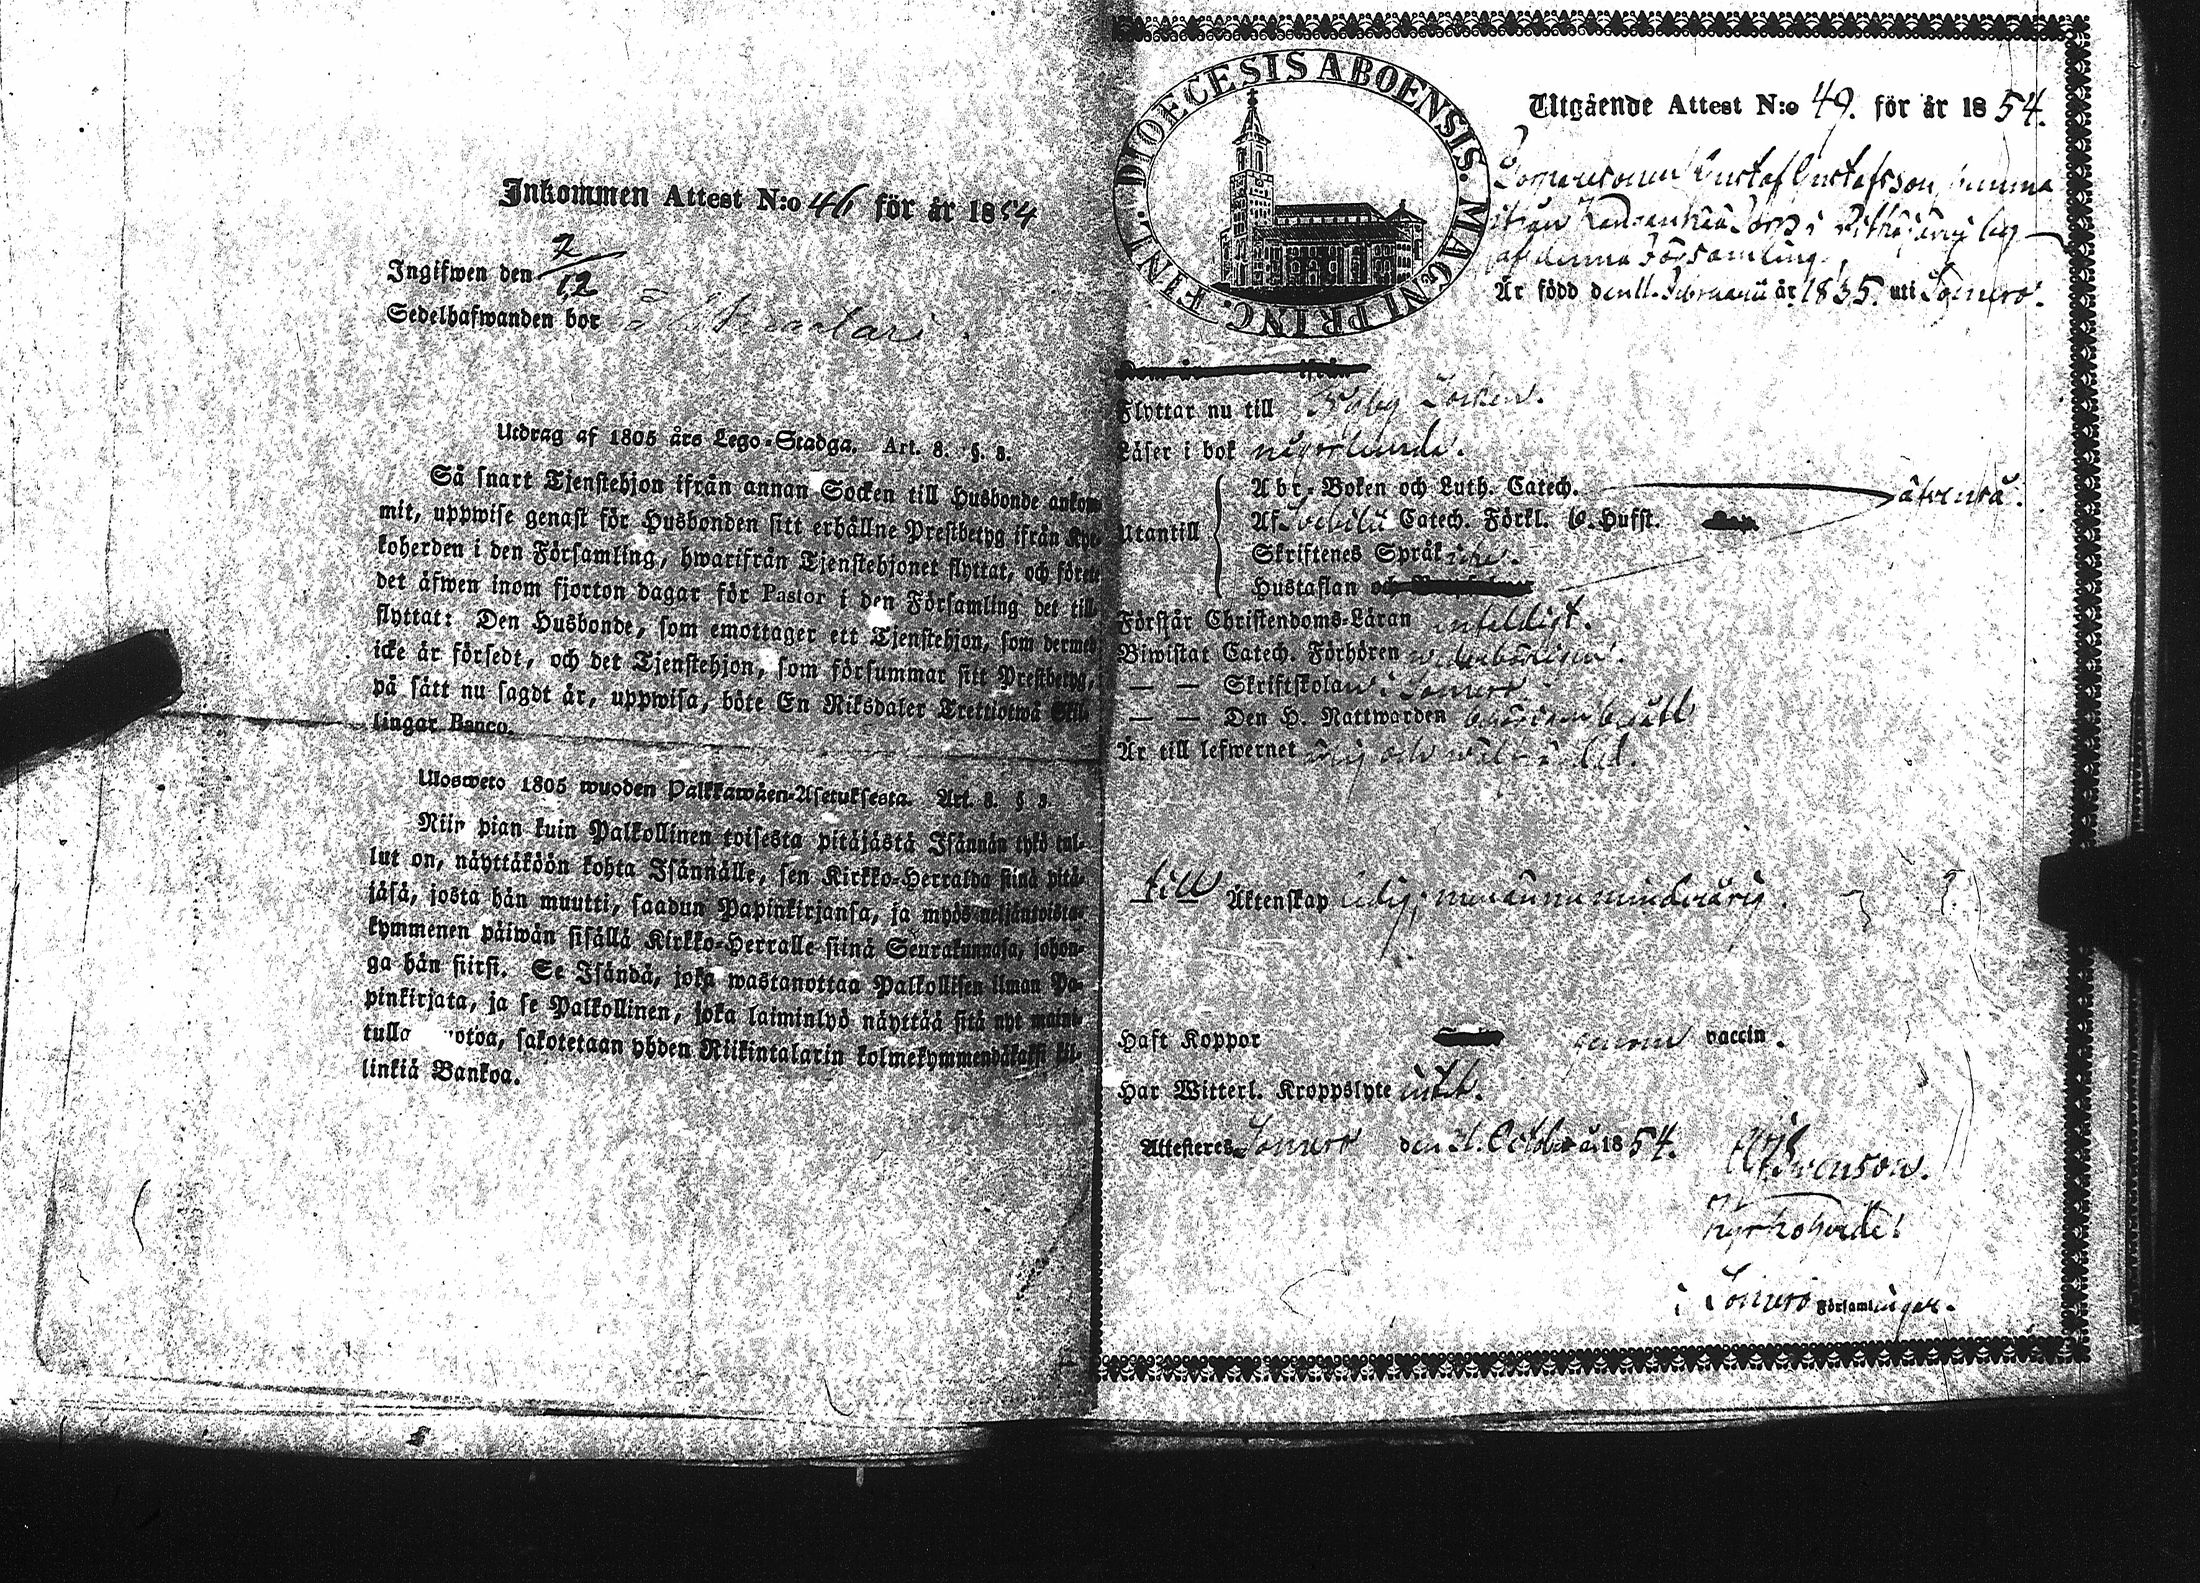 Inkommen Attest N:o 46 för år 1854
Ingifwen den 2/12
Sedelhafwanden bor
Utdrag af 1805 års Lego-Stadga. Art. 8. §. 8.
Så snart Tjenstehjon ifrån annan Socken till Husbonde ankom-
mit, uppwise genast för Husbonden sitt erhållne Prestbetyg ifrån Kyr-
koherden i den Församling, hwarifrån Tjenstehjonet flyttat, och förete
det äfwen inom fjorton dagar för Pastor i den Församling det till-
flyttat: Den Husbonde, som emottager ett Tjenstehjon, som dermed
icke är försedt, och det Tjenstehjon, som försummar sitt Prestbetyg,
på sätt nu sagdt är, uppwisa, böte En Riksdaler Trettiotwå Skil-
lingar Banco.
Ulosweto 1805 wuoden Palkkawäen-Asetuksesta. Art. 8. §
Niin pian kuin Palkollinen toisesta pitäjästä Isännän tykö tul-
lut on, näyttäköön kohta Isännälle, sen Kirkko-Herralda siinä pitä-
jäsä, josta hän muutti, saadun Papinkirjansa, ja myös neljäntoista-
kymmenen päiwän sisällä Kirkko-Herralle siinä Seurakunnasa, johon-
ga hän siirsi. Se Isändä, joka wastanottaa Palkollisen ilman Pa-
pinkirjata, ja se Palkollinen, joka laiminlyö näyttää sitä nyt maini-
tulla otoa, sakotetaan yhden Riikintalarin kolmekymmendäkaksi kil-
linkiä Bankoa.
DIOECESIS ABOENSIS. MAGNI PRINC. FINL.
Utgående Attest N:o 49. för år 1854.
Gustaf Gustafsson,
ifrån Torp i by
af denna Församling,
Är född den 11. Februarii år 1835. uti Somero.
Flyttar nu till Socken.
Läser i bok någorlunda.
Utantill
Abc-Boken och Luth. Catech. äfwenså.
Af Svebilii Catech. Förkl. 6. Hufst.
Skriftenes Språk icke.
Hustaflan och
Förstår Christendoms-Läran enfaldigt.
Biwistat Catech. Förhören wederbörligen.
— — Skriftskolan i Somero
— — Den H. Nattwarden
Är till lefwernet ärlig och
till Äktenskap ledig; men ännu minderårig.
Haft Koppor genom vaccin.
Har Witterl. Kroppslyte intet.
Attesteres Somero den 31. October år 1854.
Swenson.
Kyrkoherde
i Somero Församlingar.